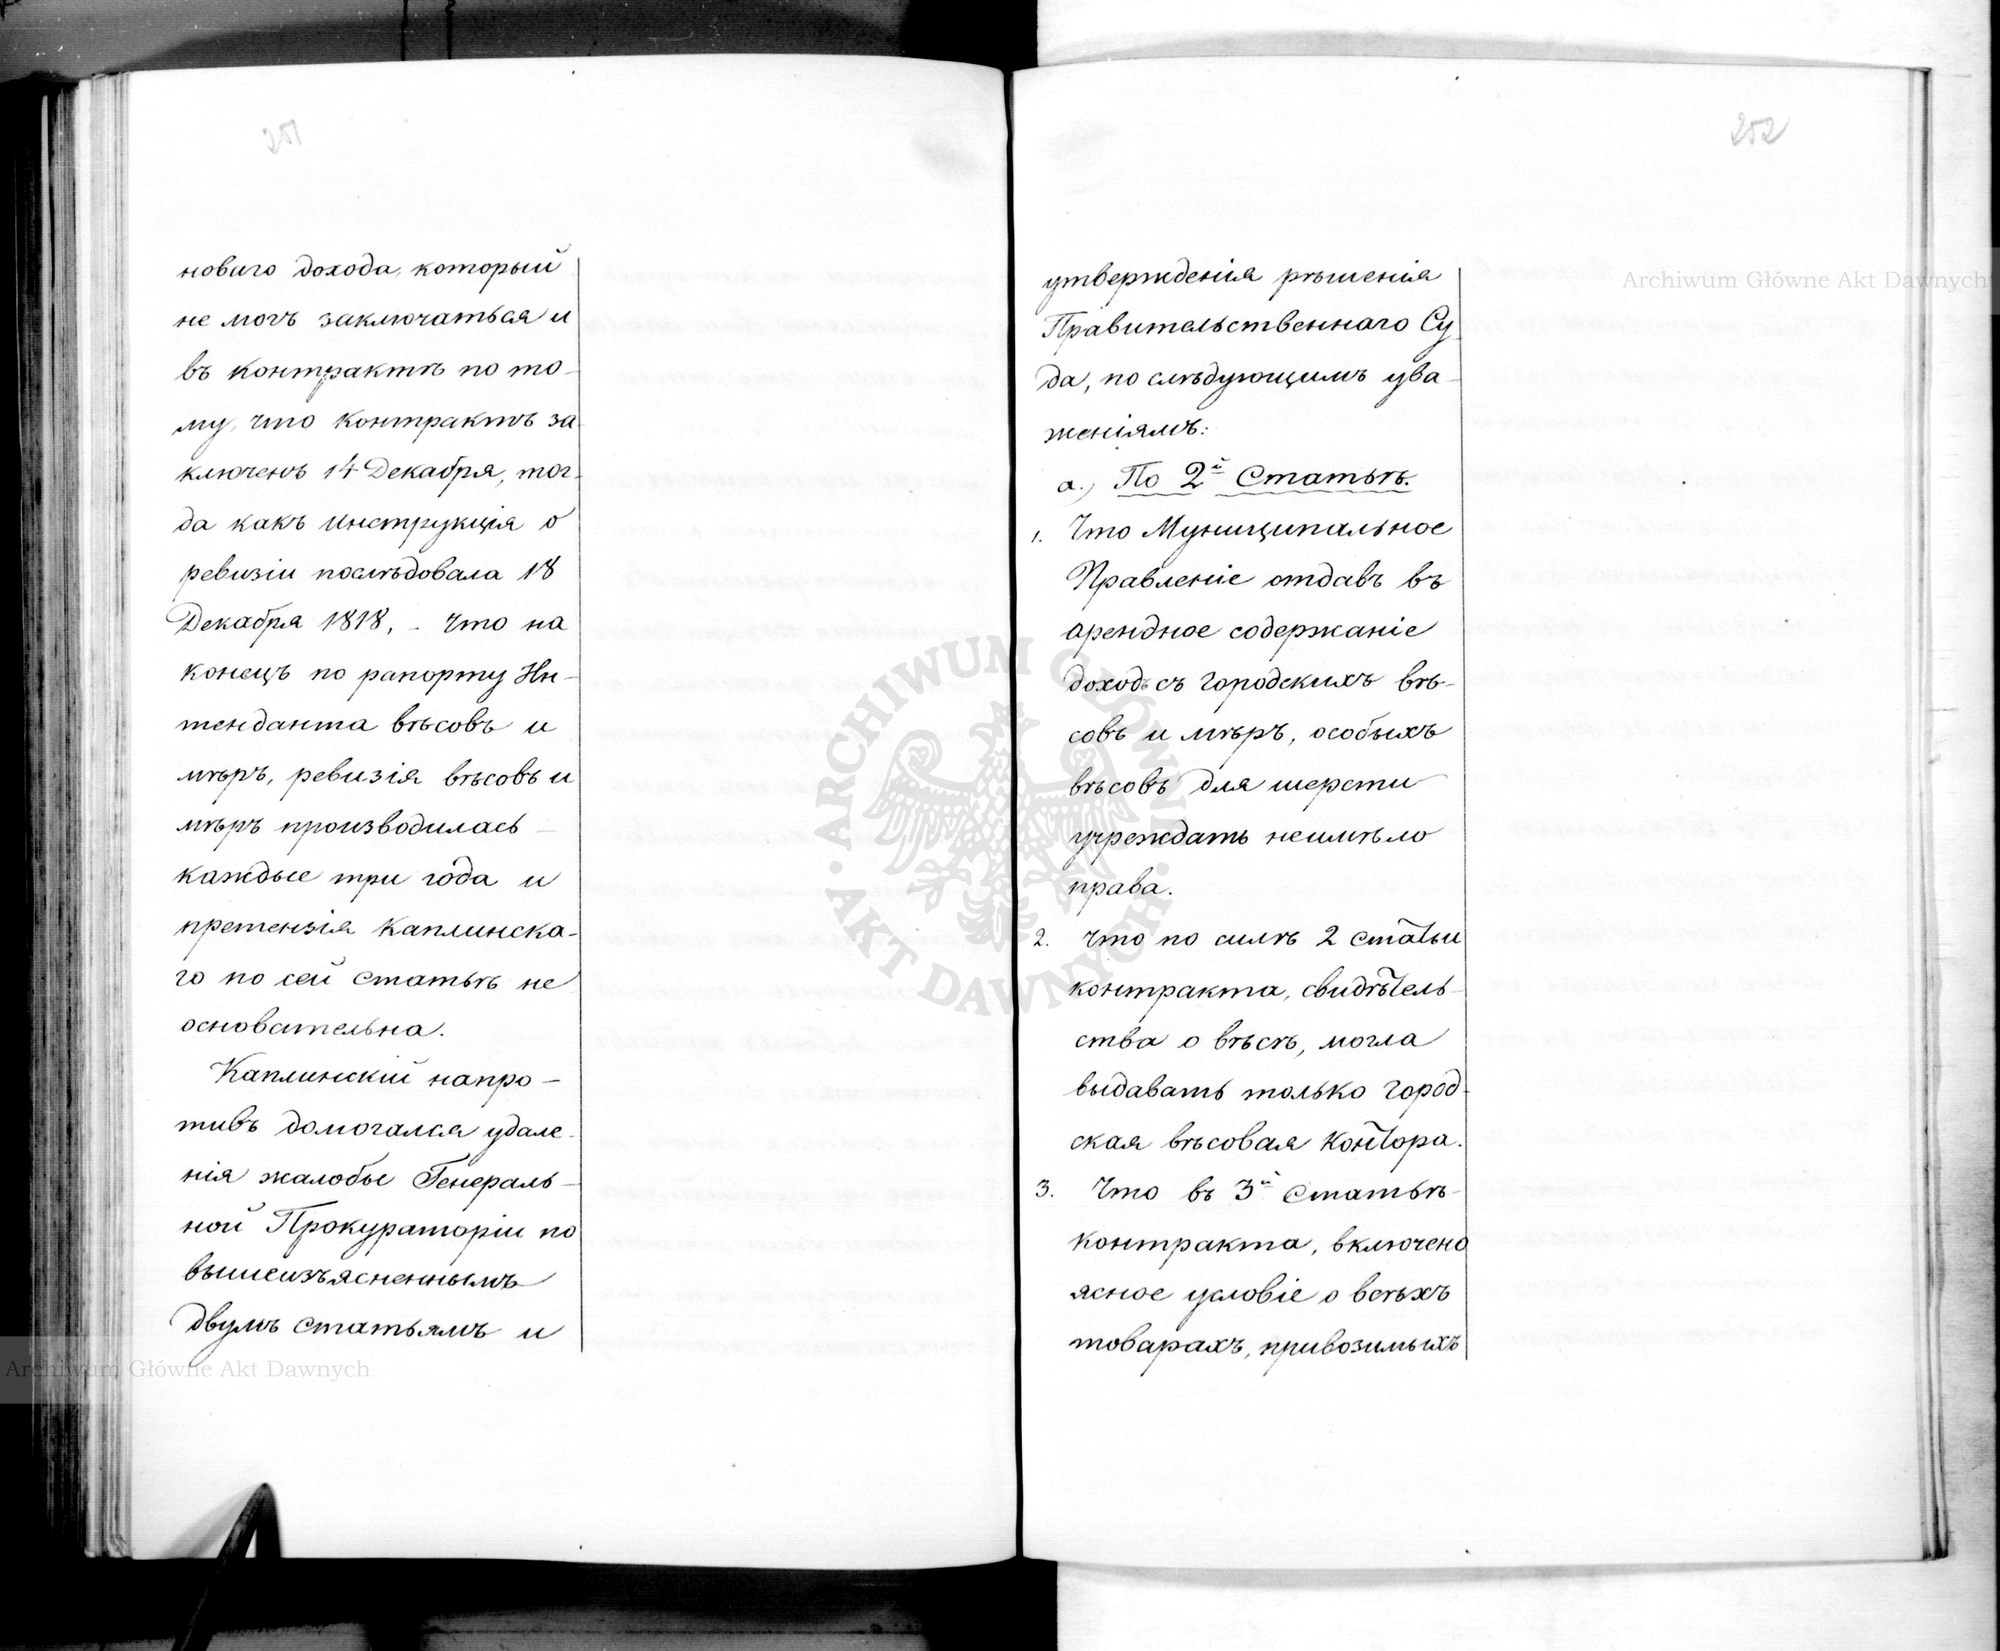 251
новаго дохода, который
не могъ заключаться и
въ контрактѣ по то-
му, что контрактъ за
ключенъ 14 Декабря, тог-
да какъ Инструкція о
ревизіи послѣдовала 18
Декабря 1818, - Что на
конецъ по рапорту Ин-
тенданта вѣсовъ и
мѣръ, ревизія вѣсовъ и
мѣръ производилась
каждые три года и
претензія Каплинска-
го по сей статьѣ не
основательна.
Каплинскій напро-
тивъ домогался удале-
нія жалобы Генераль-
ной Прокураторіи по
вышеизъясненнымъ
двумъ статьямъ и
252
утвержденія рѣшенія
Правительственнаго Су-
да, по слѣдующимъ ува-
женіямъ:
а.) По 2й Статьѣ.
1. Что Муниципальное
Правленіе отдавъ въ
арендное содержаніе
доходъ съ городскихъ вѣ-
совъ и мѣръ, особыхъ
вѣсовъ для шерсти
учреждать неимѣло
права.
2. Что по силѣ 2 статьи
контракта, свидѣтель-
ства о вѣсѣ, могла
выдавать только город-
ская вѣсовая контора.
3. Что въ 3й Статьѣ
контракта, включено
ясное условіе о всѣхъ
товарахъ, привозимыхъ
Archiwum Główne Akt Dawnych
Archiwum Główne Akt Dawnych
ARCHIWUM GŁÓWNE
AKT DAWNYCH